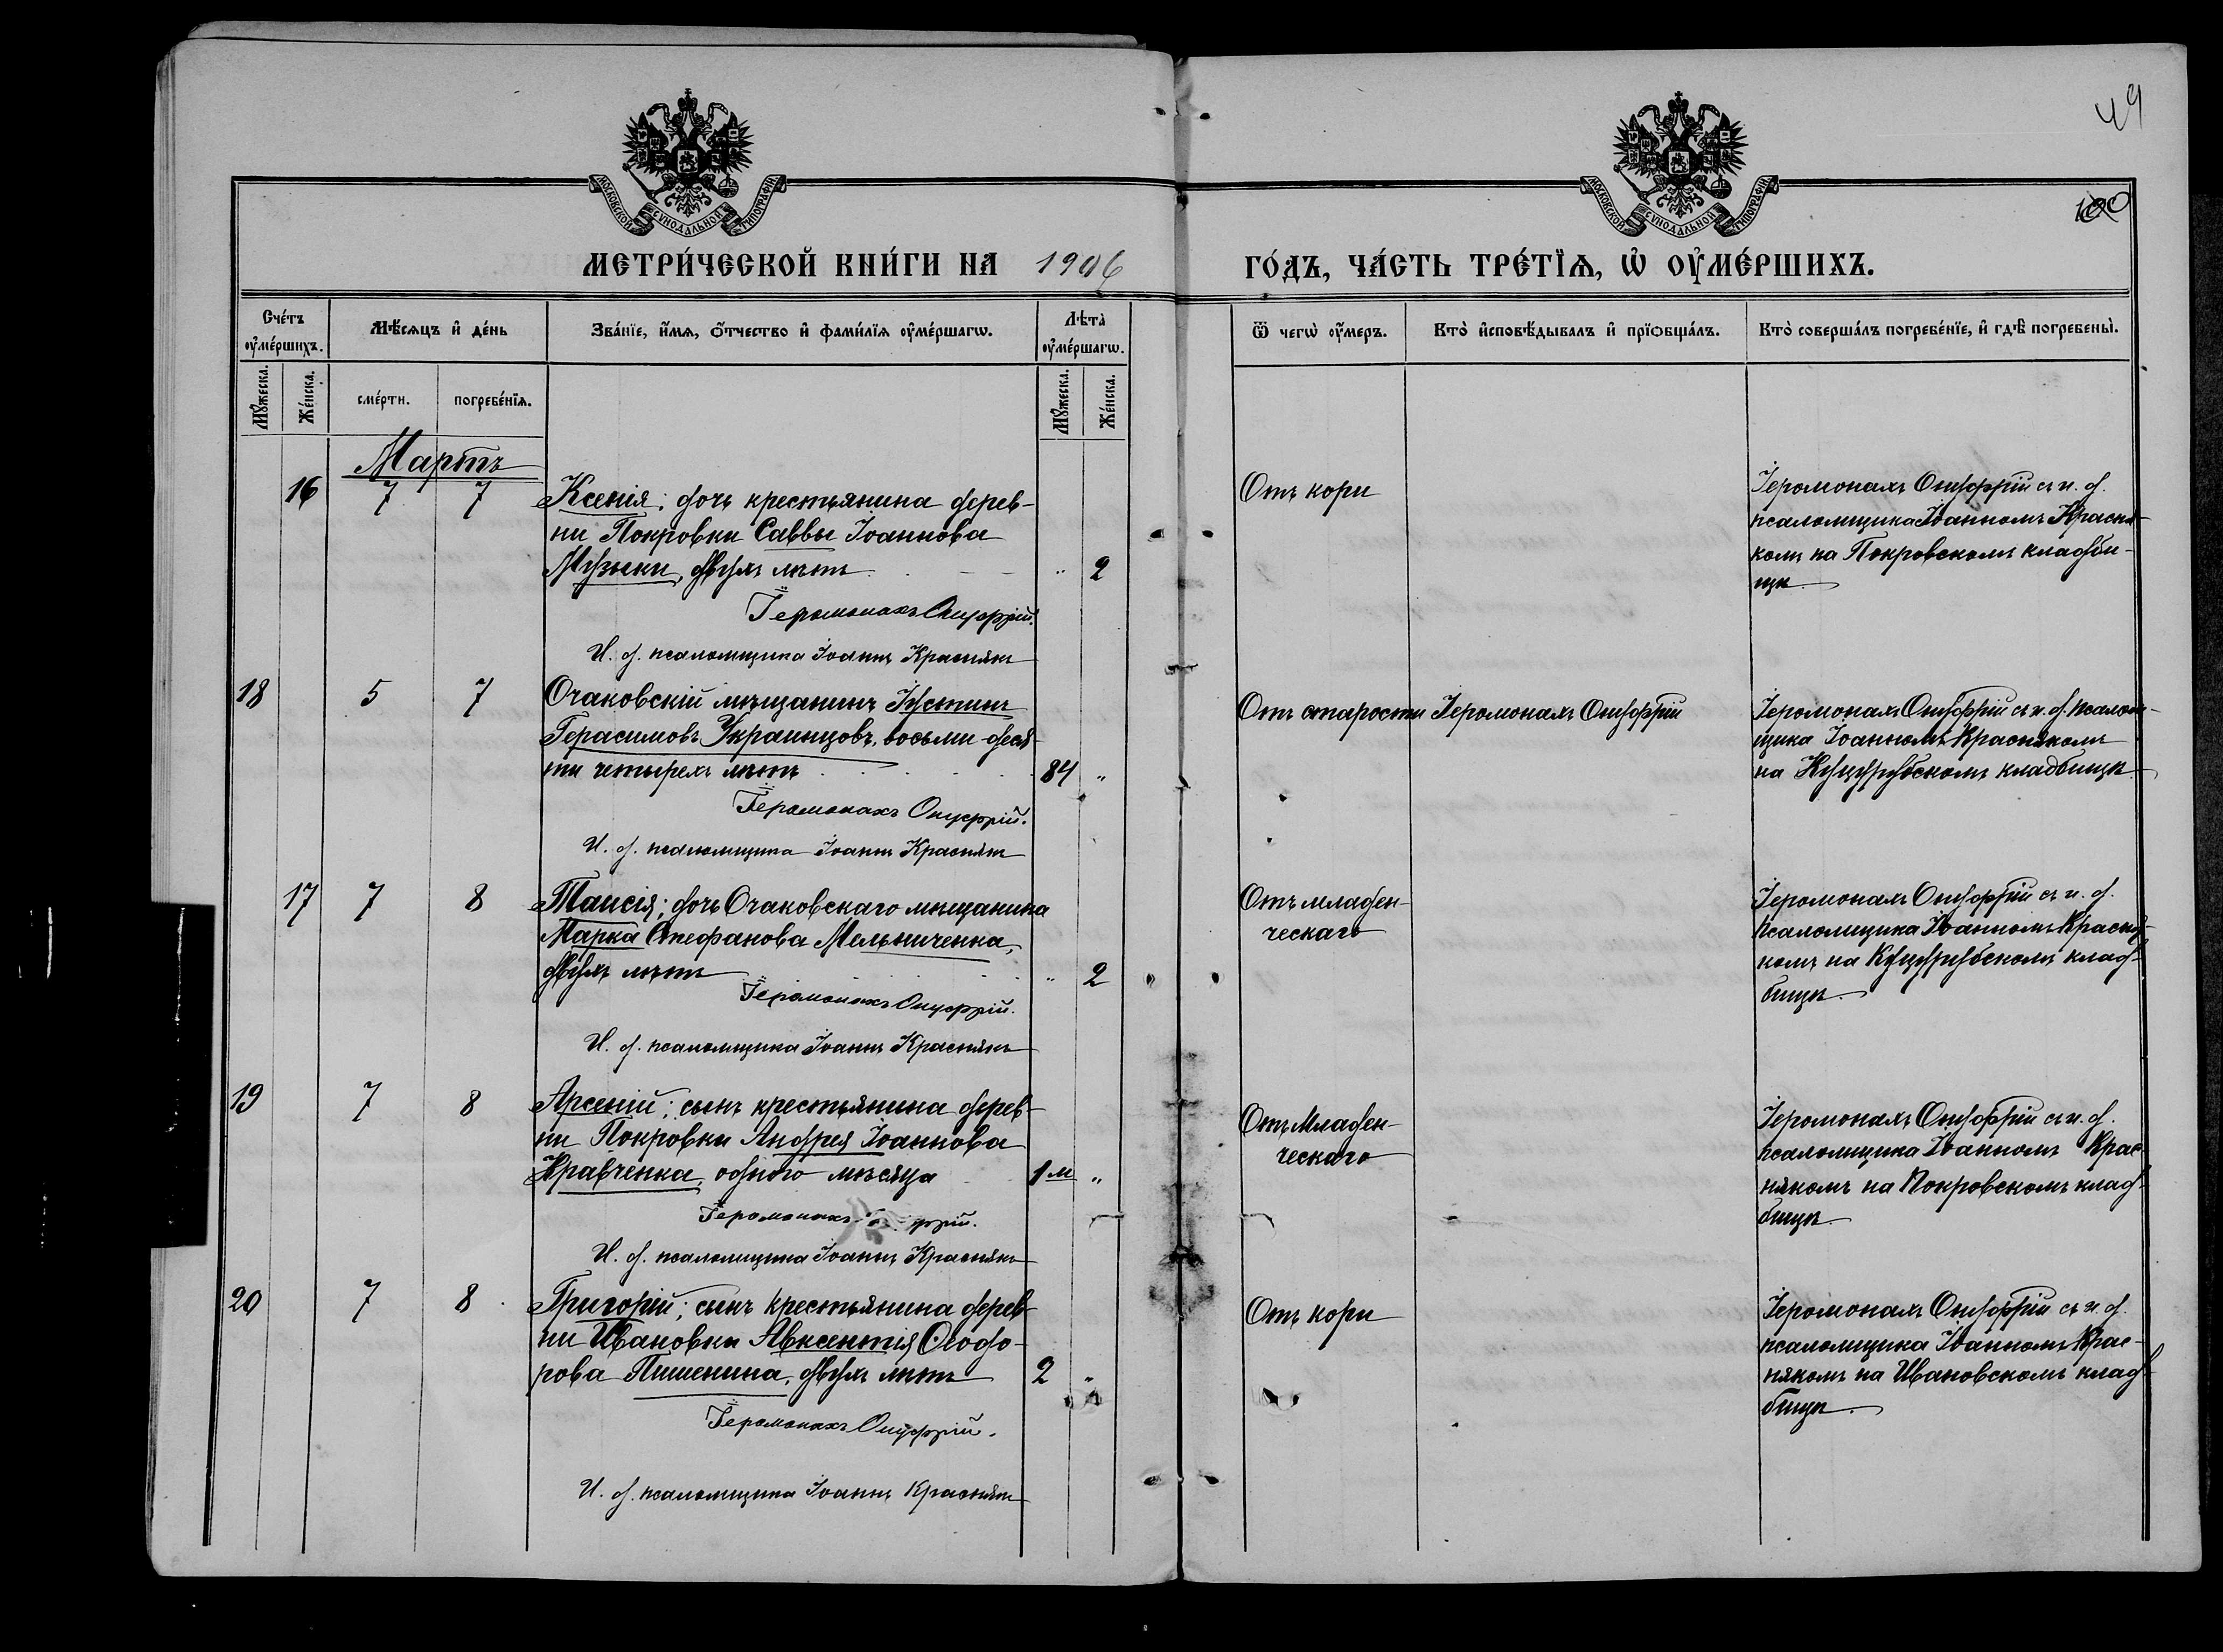 49
МОСКОВСКОЙ СѴНОДАЛЬНОЙ ТИПОГРАФІИ
МОСКОВСКОЙ СѴНОДАЛЬНОЙ ТИПОГРАФІИ
100
МЕТРИ́ЧЕСКОЙ КНИ́ГИ НА 1906
ГО́ДЪ, ЧА́СТЬ ТРЕ́ТЇѦ, Ѡ҆ ОУ҆МЕ́РШИХЪ.
Сче́тъ оу҆ме́ршихъ.
Мѣ́сѧцъ и҆ де́нь
Зва́нїе, и҆́мѧ, ѻ҆́тчество и҆ фами́лїѧ оу҆ме́ршагѡ.
Лѣ̀та̀ оу҆ме́ршагѡ.
Ѿ чегѡ̀ оу҆́меръ.
Кто̀ и҆сповѣ́дывалъ и҆ прїѡбща́лъ.
Кто̀ соверша́лъ погребе́нїе, и҆ гдѣ̀ погребены̀.
Мꙋ́жеска.
Же́нска.
сме́рти.
погребе́нїѧ.
Мꙋ́жеска.
Же́нска.
Мартъ
16 7 7 Ксенія; дочь крестьянина дерев-
ни Покровки Саввы Іоаннова
Музыки, двухъ лѣтъ " 2
Іеромонахъ Онуфрій.
И. д. псаломщика Іоаннъ Краснякъ
Отъ кори
Іеромонахъ Онуфрій съ и. д.
псаломщика Іоанномъ Красня-
комъ на Покровскомъ кладби-
щѣ
18 5 7 Очаковскій мѣщанинъ Іустинъ
Герасимовъ Украинцовъ, восьми-деся-
ти четырехъ лѣтъ 84 "
Іеромонахъ Онуфрій.
И. д. псаломщика Іоаннъ Краснякъ
Отъ старости
Іеромонахъ Онуфрій
Іеромонахъ Онуфрій съ и. д. псалом-
щика Іоанномъ Краснякомъ
на Куцурубскомъ кладбищѣ
17 7 8 Таисія; дочь Очаковскаго мѣщанина
Марка Стефанова Мельниченка,
двухъ лѣтъ " 2
Іеромонахъ Онуфрій.
И. д. псаломщика Іоаннъ Краснякъ
Отъ младен-
ческаго
Іеромонахъ Онуфрій съ и. д.
псаломщика Іоанномъ Красня-
комъ на Куцурубскомъ клад-
бищѣ.
19 7 8 Арсеній; сынъ крестьянина дерев-
ни Покровки Андрея Іоаннова
Кравченка, одного мѣсяца 1 м "
Іеромонахъ
И. д. псаломщика Іоаннъ Краснякъ
Отъ Младен-
ческаго
Іеромонахъ Онуфрій съ и. д.
псаломщика Іоанномъ Крас-
някомъ на Покровскомъ клад-
бищѣ.
20 7 8 Григорій; сынъ крестьянина дерев-
ни Ивановки Авксентія Ѳеодо-
рова Пишенина, двухъ лѣтъ 2 "
Іеромонахъ Онуфрій.
И. д. псаломщика Іоаннъ Краснякъ
Отъ кори
Іеромонахъ Онуфрій съ и. д.
псаломщика Іоанномъ Крас-
някомъ на Ивановскомъ клад-
бищѣ.